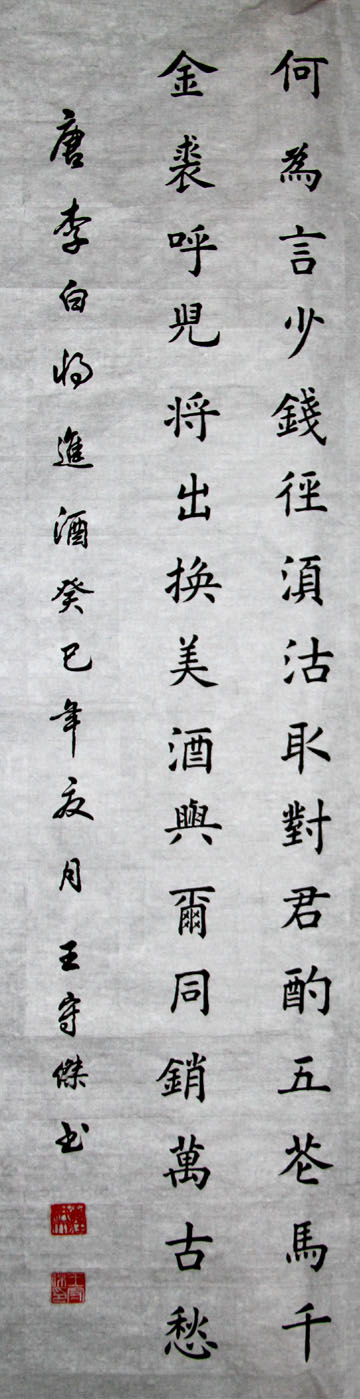 何為言少錢徑湏沽取對君酌五花馬千
金裘呼兒将出换美酒與爾同銷萬古愁
唐李白将進酒癸巳年夏月王守傑书